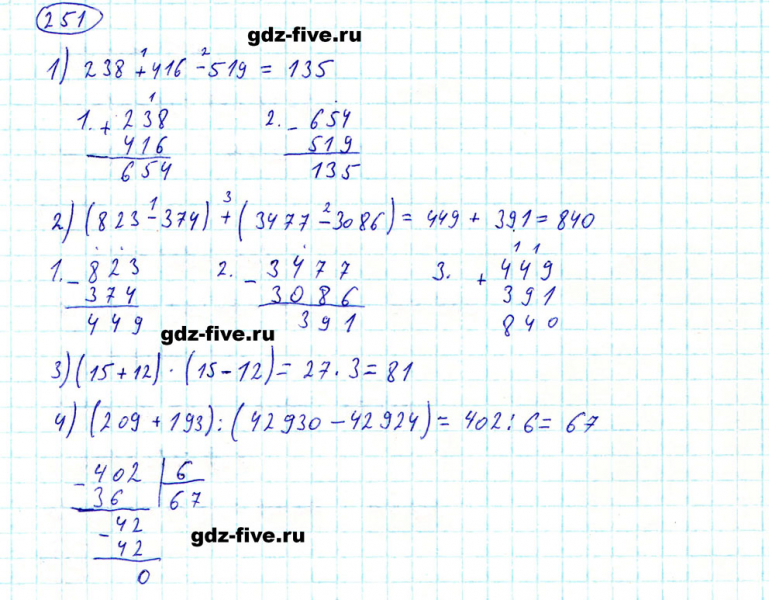 251
gdz-five.ru
1) 238 + 416 - 519 = 135
1. + 238 2. - 654
416 519
654 135
2) (823 - 374) + (3477 - 3086) = 449 + 391 = 840
1. - 823 2. - 3477 3. + 449
374 3086 391
449 391 840
gdz-five.ru
3) (15 + 12) · (15 - 12) = 27 · 3 = 81
4) (209 + 193) : (42930 - 42924) = 402 : 6 = 67
- 402 | 6
36 | 67
- 42
42
0
gdz-five.ru